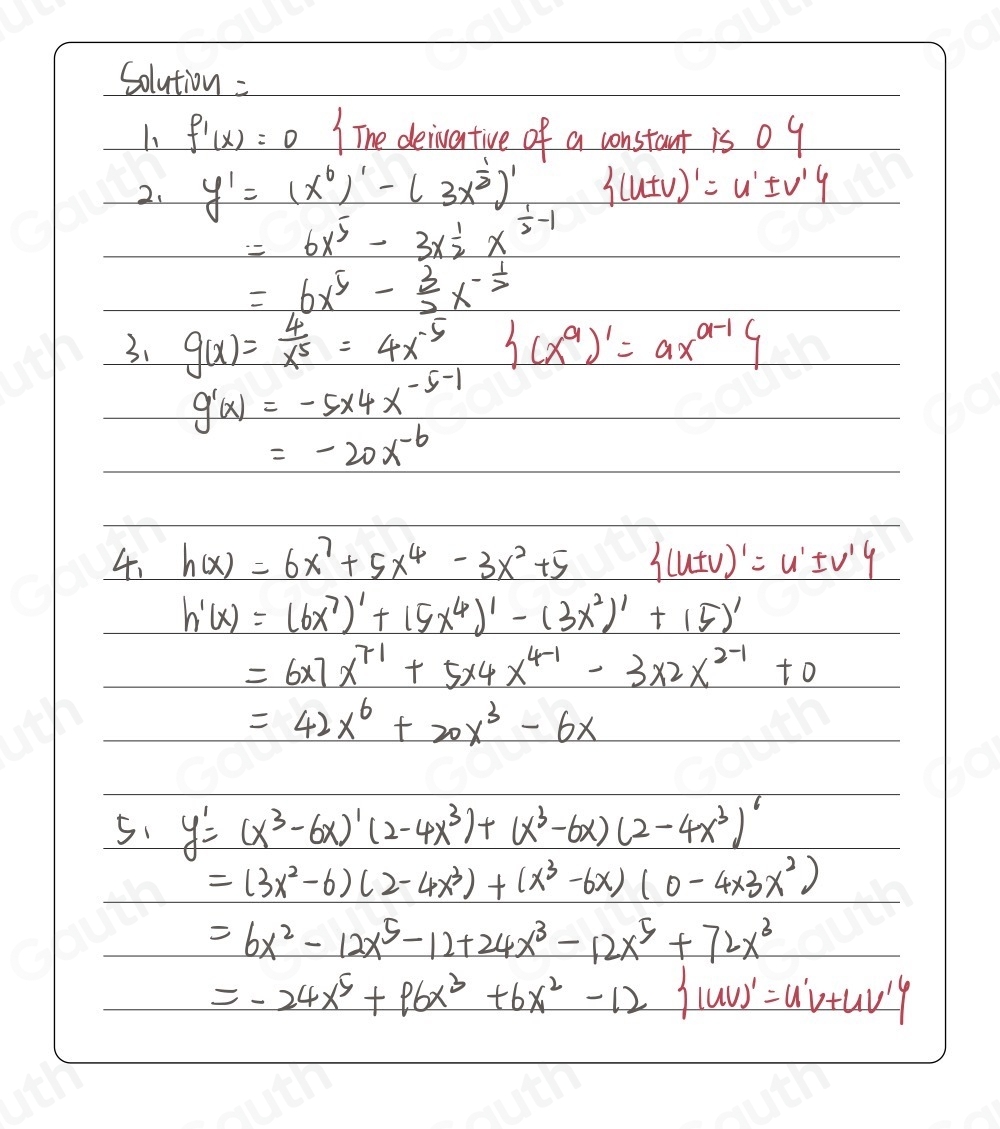 Solution =
1. f'(x) = 0 {The deivative of a constant is 0}
2. y' = (x⁶)' - (3x^½)' {(u±v)' = u'±v'}
= 6x⁵ - 3×½ x^(½-1)
= 6x⁵ - 3/2 x^(-½)
3. g(x) = 4/x⁵ = 4x⁻⁵ {(xᵃ)' = ax^(a-1)}
g'(x) = -5×4x^(-5-1)
= -20x⁻⁶
4. h(x) = 6x⁷ + 5x⁴ - 3x² + 5 {(u±v)' = u'±v'}
h'(x) = (6x⁷)' + (5x⁴)' - (3x²)' + (5)'
= 6×7x^(7-1) + 5×4x^(4-1) - 3×2x^(2-1) + 0
= 42x⁶ + 20x³ - 6x
5. y' = (x³-6x)'(2-4x³) + (x³-6x)(2-4x³)'
= (3x²-6)(2-4x³) + (x³-6x)(0-4×3x²)
= 6x² - 12x⁵ - 12 + 24x³ - 12x⁵ + 72x³
= -24x⁵ + 96x³ + 6x² - 12 {(uv)' = u'v+uv'}
Gauth